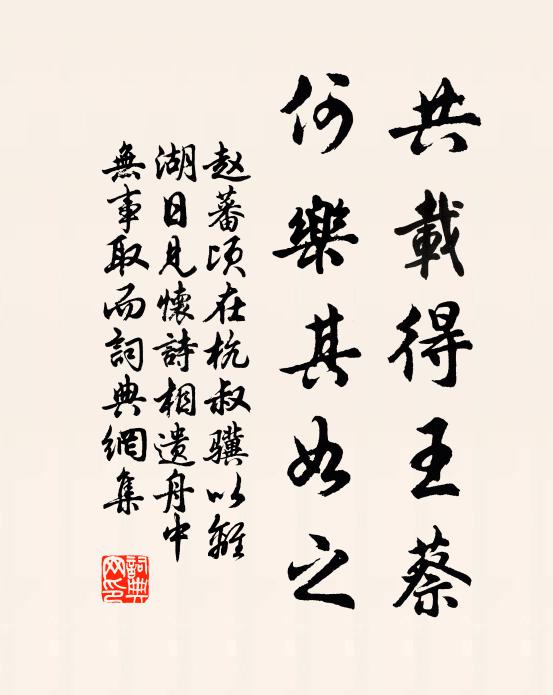 共載得王蔡
何樂其如之
赵蕃頃在杭叔驥以離
湖日見懷詩相遗舟中
無事取而詞典網集
詞典
网印